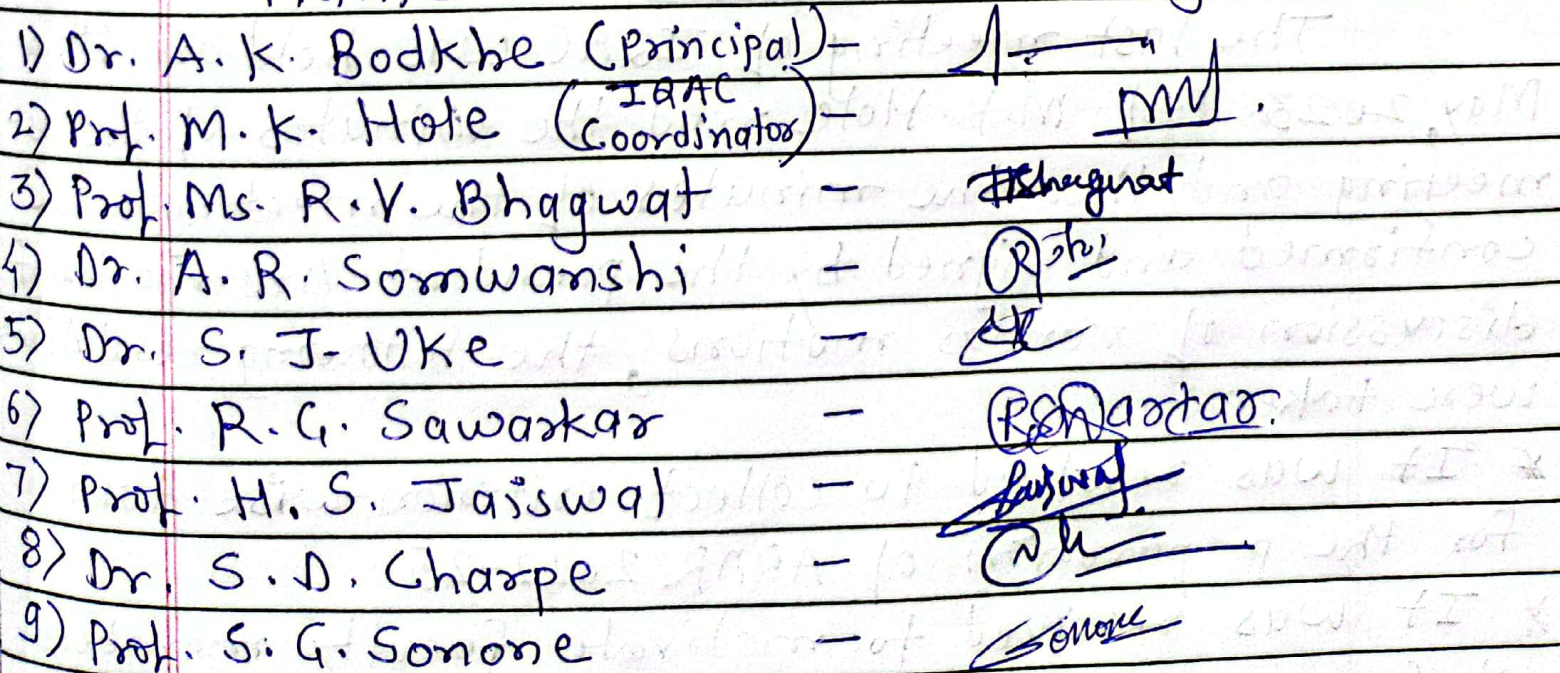 1) Dr. A. K. Bodkhe (Principal) –
2) Prof. M. K. Hote (IQAC Coordinator) –
3) Prof. Ms. R. V. Bhagwat – Bhagwat
4) Dr. A. R. Somwanshi –
5) Dr. S. J. Uke –
6) Prof. R. G. Sawarkar –
7) Prof. H. S. Jaiswal – Jaiswal
8) Dr. S. D. Charpe –
9) Prof. S. G. Sonone – Sonone